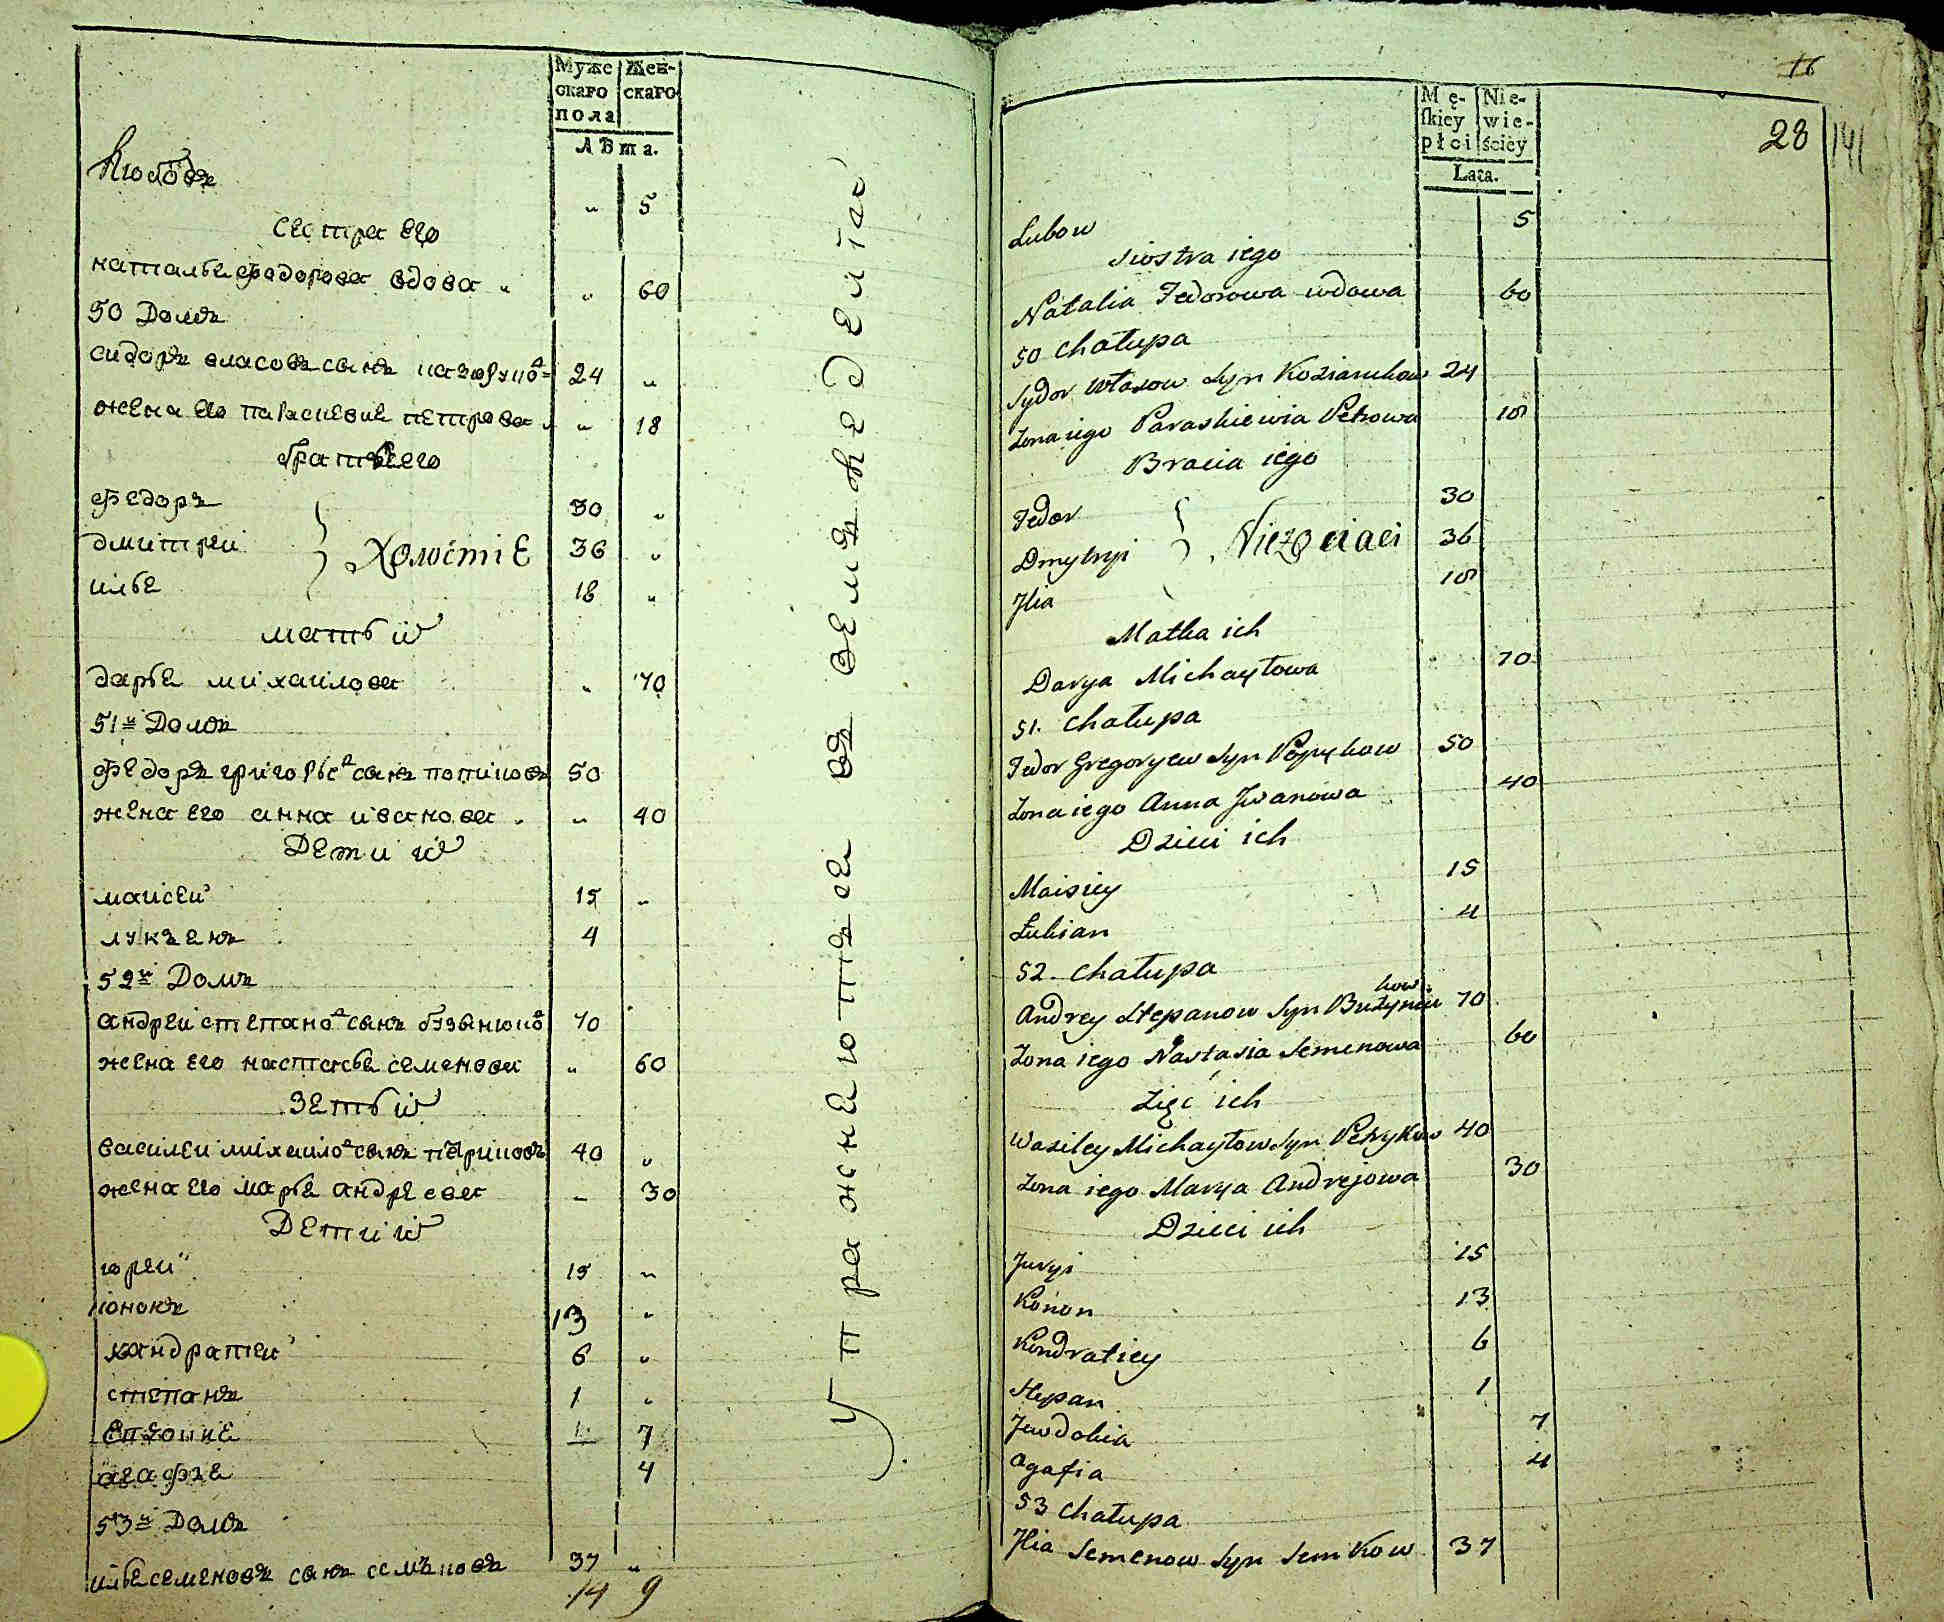 Муже
скаго
пола
Жен-
скаго
Лѣта.
Любовь " 5
сестра его
наталья федорова вдова " " 60
50 Домъ
сидоръ власовъ сынъ 24 "
жена его параскевие петрова " 18
братья его
федоръ 30 "
дмитреи } Холостіе 36 "
илье 18 "
мать их
дарье михаилова " 70
51й Домъ
федоръ григорьев сынъ попиковъ 50
жена его анна иванова " 40
Дети их
маисеи 15 "
лукъенъ 4
52й Домъ
андреи степанов сынъ 70
жена его настасье семенова " 60
Зеть их
василеи михаилов сынъ петриковъ 40 "
жена его марье андреева " 30
Дети их
юреи 15 "
кононъ 13 "
кандратеи 6 "
степанъ 1 "
7
агафъе 4
53й Домъ
илье семеновъ сынъ семъковъ 37 "
14 9
Упражняютъся въ земледелие
16
28
141
Mę-
skiey
płci
Nie-
wie-
ściey
Lata.
Lubow 5
siostra iego
Natalia Fedorowa wdowa 60
50 chałupa
Sydor Własow syn Koziarukow 24
Żona iego Paraskiewia Petrowa 18
Bracia iego
Fedor 30
Dmytryi } Nieżonaci 36
Jlia 18
Matka ich
Darya Michayłowa 70
51. chałupa
Fedor Gregoryew syn Popykow 50
Żona iego Anna Jwanowa 40
Dzieci ich
Maisiey 15
Łukian 4
52. chałupa
Andrey Stepanow syn 70
Żona iego Nastasia Semenowa 60
Zięć ich
Wasiley Michayłow syn Petrykow 40
Żona iego Marya Andrejowa 30
Dzieci ich
Juryi 15
Konon 13
Kondratiey 6
Stepan 1
Jewdokia 7
Agafia 4
53 chałupa
Jlia Semenow syn Semkow 37